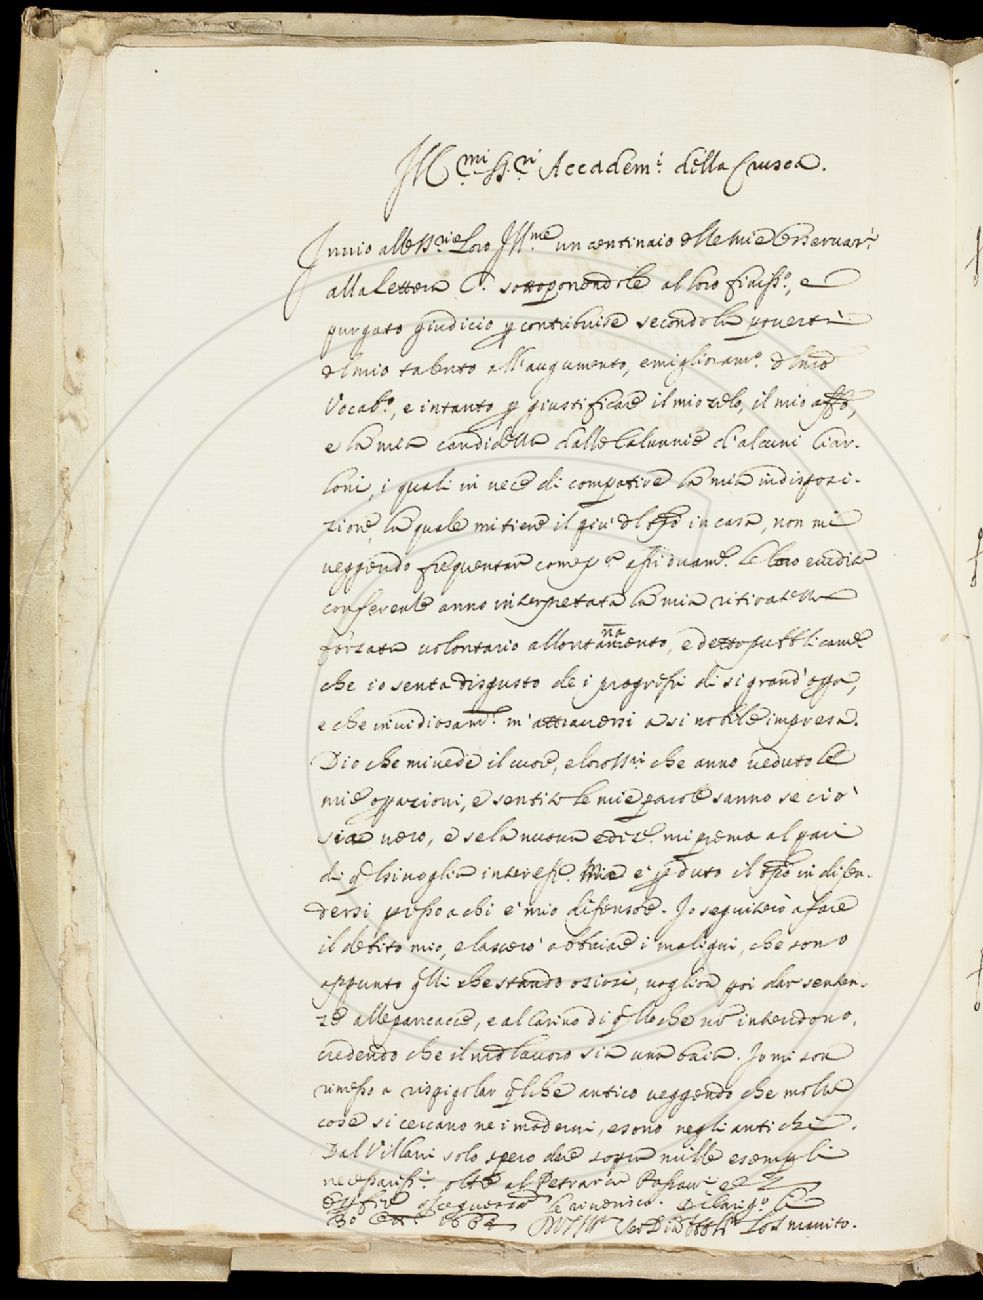 Ill.mi SS.ri Accadem.i della Crusca.
Invio alle SS.rie Loro Ill.me un centinaio delle mie osservaz.i
alla lettera C. sottoponendole al loro finiss.o, e
purgato giudicio p contribuire secondo la povertà
del mio talento all'augumento, e miglioram.o del nro
Vocab.o, e intanto p giustificare il mio zelo, il mio affo,
e la mia candidezza dalle calunnie d'alcuni ciar-
loni, i quali in vece di compatire la mia indisposi-
zione, la quale mi tiene il più del tpo in casa, non mi
veggendo frequentar come p assiduam.e le loro erudite
conferenze anno interpretata la mia ritiratezza
forzata volontario allontanamento, e detto pubblicam.e
che io senta disgusto de i progressi di sì grand'opra,
e che invidiosam.e m'attraversi a sì nobile impresa.
Dio che mi vede il cuore, e loro SS.ri che anno veduto le
mie operazioni, e sentito le mie parole sanno se ciò
sia vero, e se la nuova ediz.e mi prema al pari
di qlsivoglia interesse. Ma è pduto il tpo in difen-
dersi presso a chi è mio difensore. Io seguiterò a fare
il debito mio, e lascerò abbaiare i maligni, che sono
appunto qlli che stando oziosi, voglion poi dar senten-
ze alle pancacce, e al canto di qllo che nō intendono,
credendo che il nro lavoro sia una baia. Io mi son
rimesso a rispigolar qlche antico veggendo che molte
cose si cercano ne i moderni, e sono negli antichi.
Dal Villani solo spero dare sopra mille esempli
necessariss.i oltre al Petrarca Passav.i e
le riverisco. Di